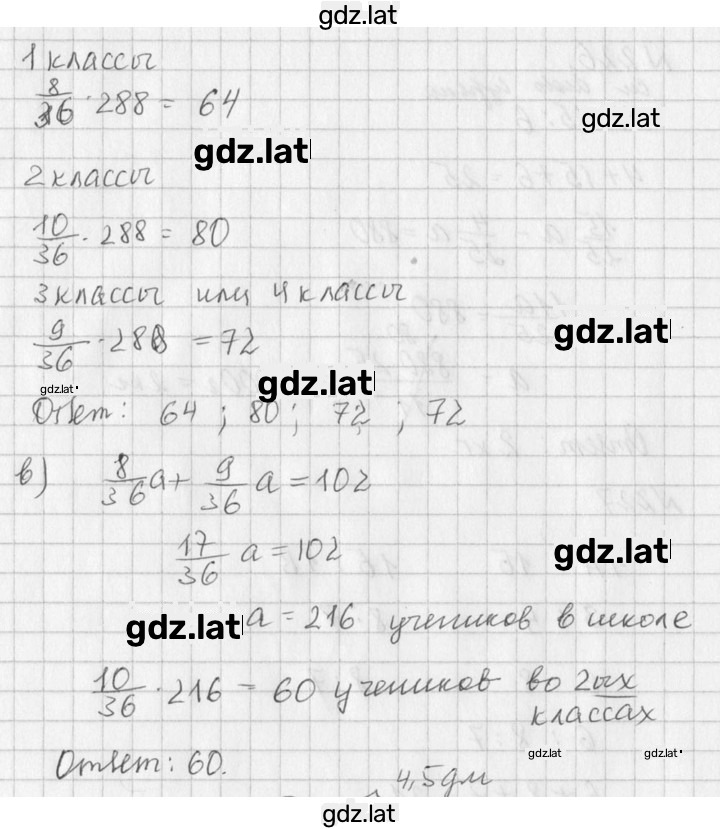 gdz.lat
1 классы
8/36 · 288 = 64
gdz.lat
gdz.lat
2 классы
10/36 · 288 = 80
3 классы или 4 классы
gdz.lat
9/36 · 288 = 72
gdz.lat
gdz.lat
Ответ: 64 ; 80 ; 72 ; 72
в) 8/36 a + 9/36 a = 102
17/36 a = 102
gdz.lat
gdz.lat a = 216 учеников в школе
10/36 · 216 = 60 учеников во 2ых
классах
gdz.lat gdz.lat
Ответ: 60.
4,5 дм
gdz.lat